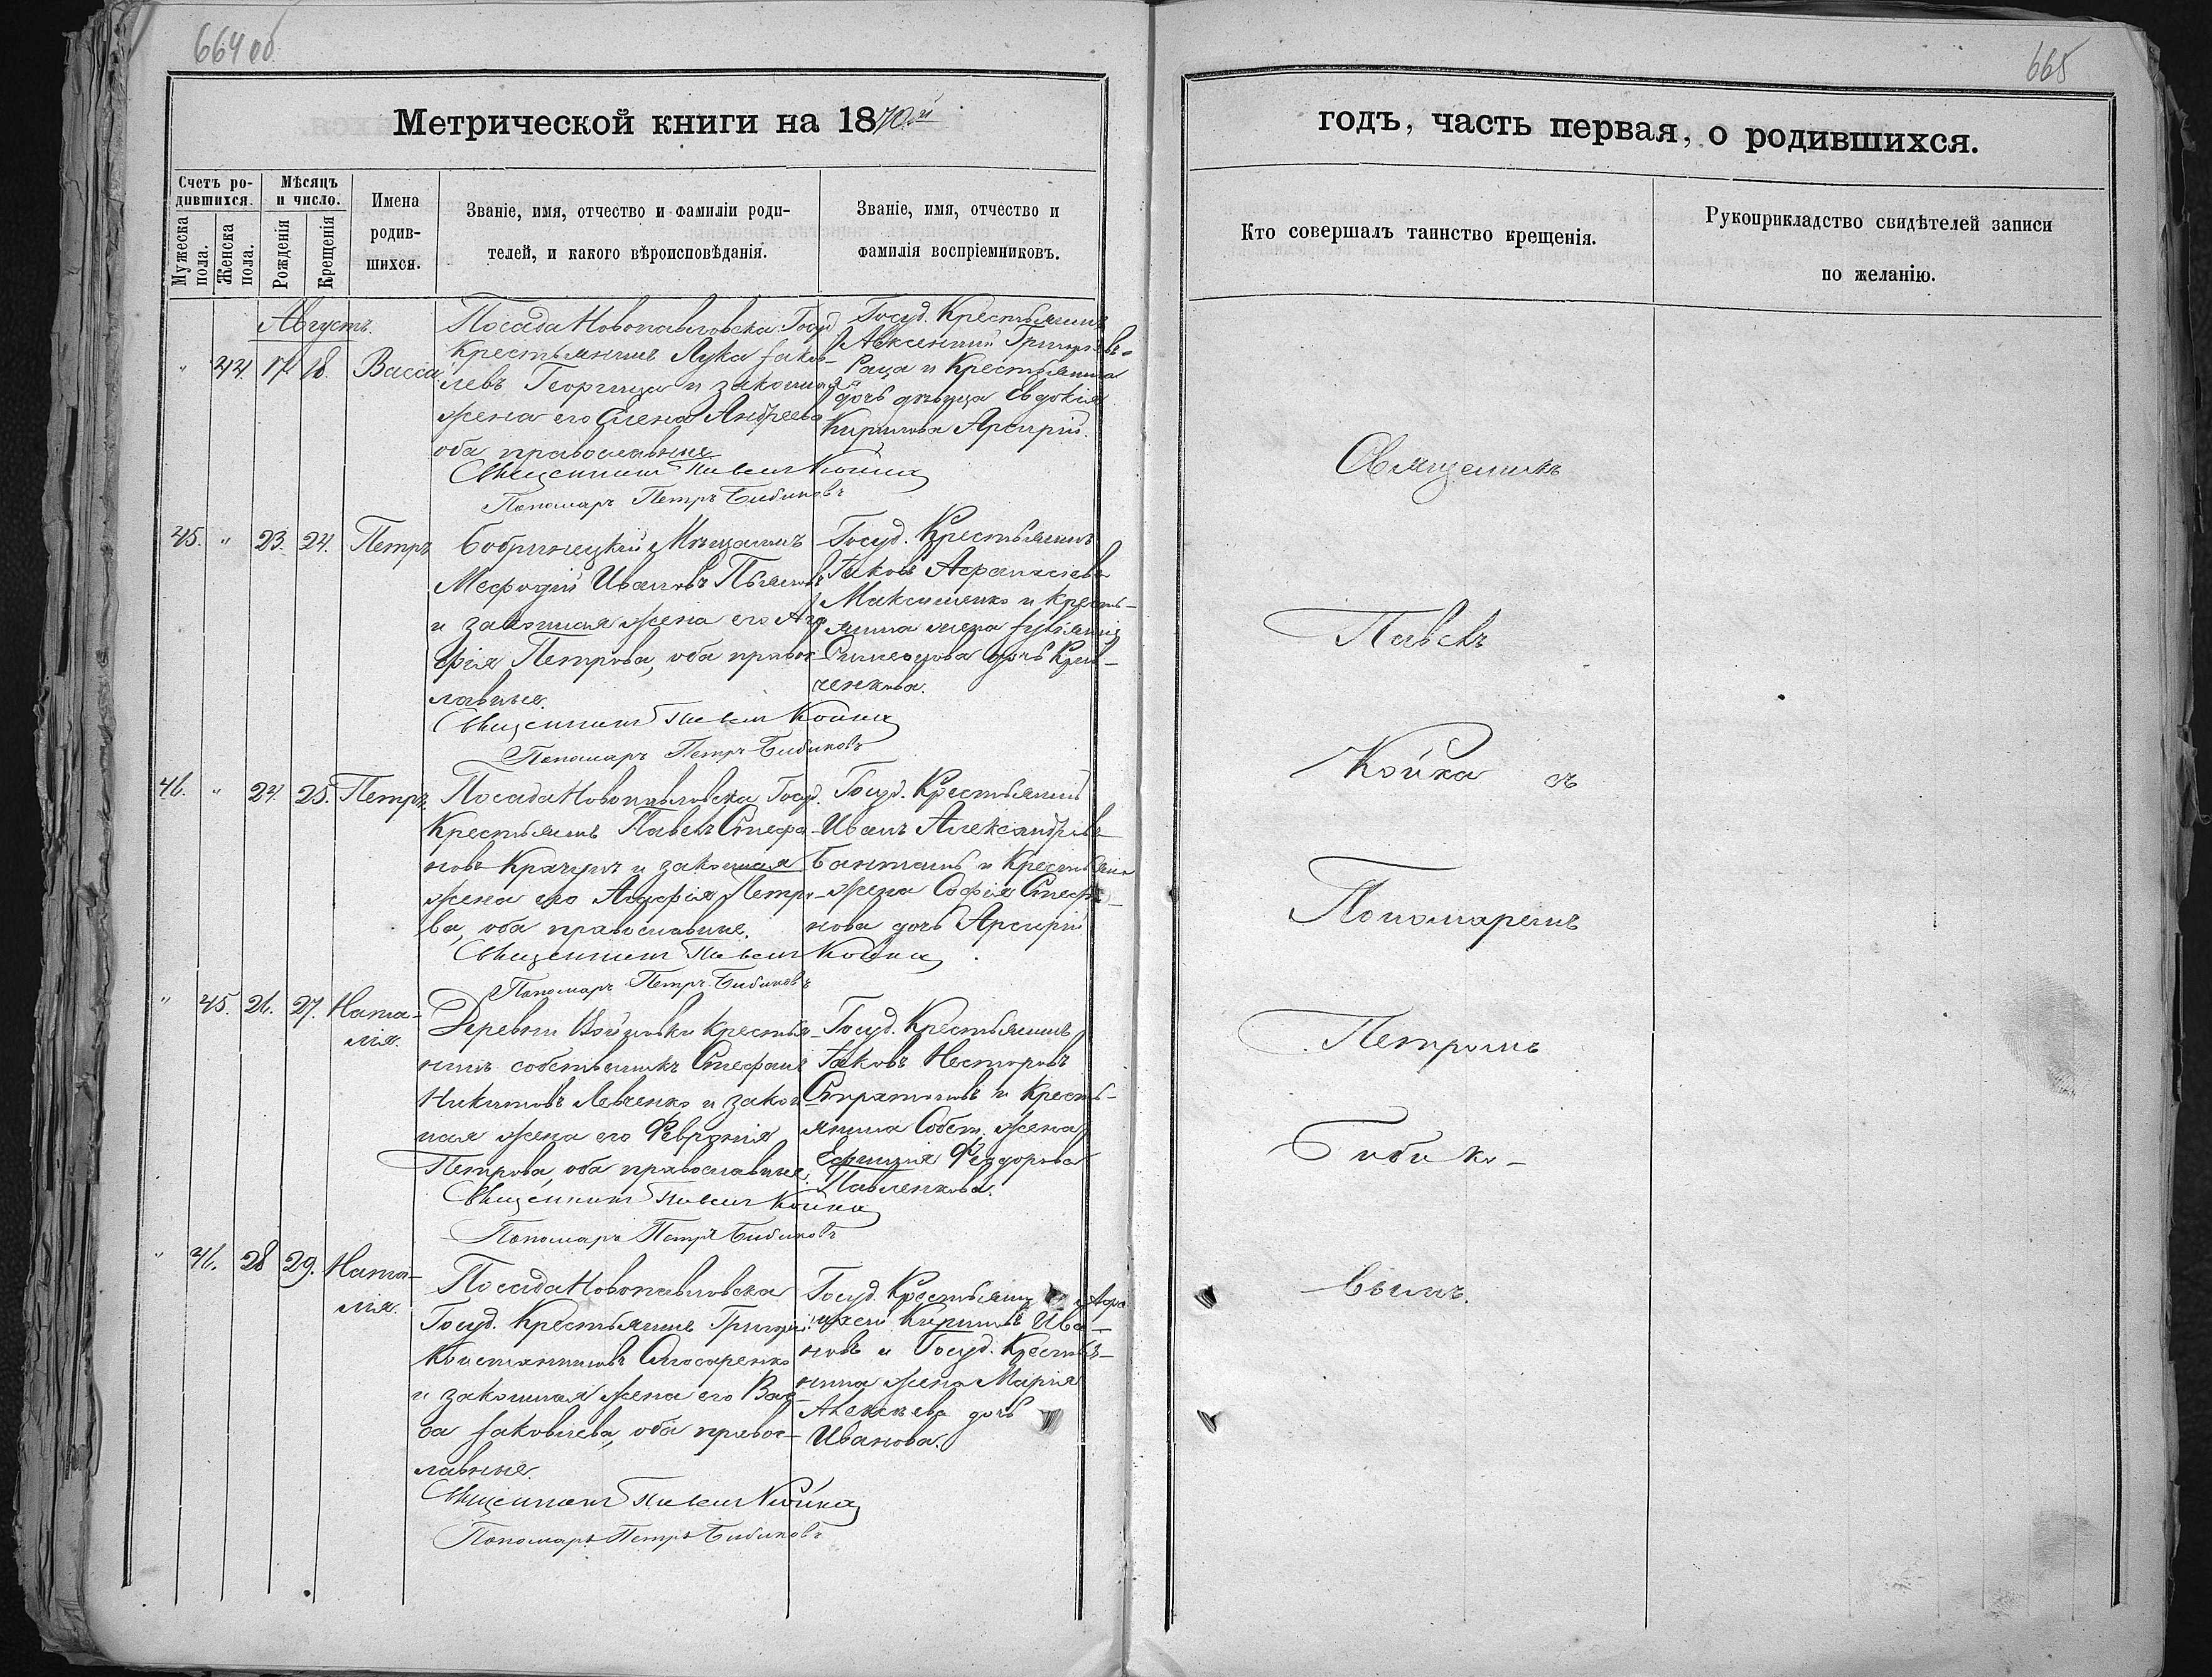 664 об
665
Метрической книги на 1870й
годъ, часть первая, о родившихся.
Счетъ родившихся.
Мужеска пола.
Женска пола.
Мѣсяцъ и число.
Рожденія
Крещенія
Имена родившихся.
Званіе, имя, отчество и фамиліи родителей, и какого вѣроисповѣданія.
Званіе, имя, отчество и фамилія воспріемниковъ.
Кто совершалъ таинство крещенія.
Рукоприкладство свидѣтелей записи
по желанію.
Августъ.
" 44. 17 18. Васса
Посада Новопавловска Госуд
Крестьянинъ Лука Іаков-
левъ Георгица и законная
жена его Елена Андреева
оба православные
Священникъ Павелъ Койка
Пономарь Петръ Бибиковъ
Госуд. Крестьянинъ
Авксентий Григорьевъ
Раца и Крестьянина
дочь дѣвица Евдокія
Кирилова Арсирій.
45. " 23. 24. Петръ
Бобринецкій Мѣщанинъ
Мефодій Ивановъ
и законная жена его Ага
фія Петрова, оба правос-
лавные.
Священникъ Павелъ Койка
Пономарь Петръ Бибиковъ
Госуд. Крестьянинъ
Іаковъ Афанасіевъ
Максименко и Кресть-
янина жена Іуліанія
Симеонова дочь
ченкова.
46. " 24. 25. Петръ.
Посада Новопавловска Госуд.
Крестьянинъ Павелъ Стефа-
новъ Крачунъ и законная
жена его Агафія Петро-
ва, оба православные.
Священникъ Павелъ Койка
Пономарь Петръ Бибиковъ
Госуд. Крестьянинъ
Иванъ Александровъ
Бантышъ и Крестьянина
жена Софія Стефа-
нова дочь Арсирій
" 45. 26. 27. Ната-
лія.
Деревни Крестья-
нинъ собственникъ Стефанъ
Никитовъ Левченко и закон
ная жена его Февронія
Петрова, оба православные.
Священникъ Павелъ Койка
Пономарь Петръ Бибиковъ
Госуд. Крестьянинъ
Іаковъ Несторовъ
и Кресть-
янина Собст. жена
Ефимія Феодорова
Павленкова.
" 46. 28 29. Ната-
лія.
Посада Новопавловска
Госуд. Крестьянинъ Григорій
Константиновъ Слюсаренко
и законная жена его Вар-
ва Іаковлева, оба правос-
лавные.
Священникъ Павелъ Койка
Пономарь Петръ Бибиковъ
Госуд. Крестьянинъ
Кириловъ Ива-
новъ и Госуд. Крестья-
нина жена Марія
Алексѣева дочь
Иванова.
Священникъ
Павелъ
Койка съ
Пономаремъ
Петромъ
Бибико-
вымъ.